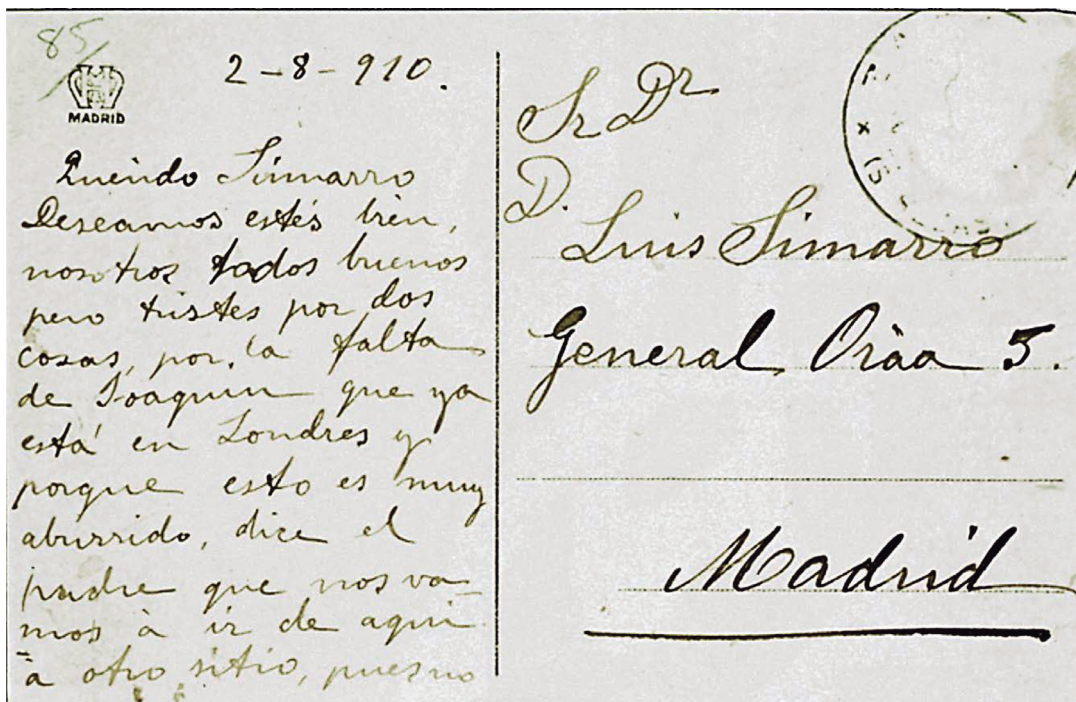 85
MADRID
2-8-910.
Querido Simarro
Deseamos estés bien,
nosotros todos buenos
pero tristes por dos
cosas, por la falta
de Joaquin que ya
está en Londres y
porque esto es muy
aburrido, dice el
padre que nos va-
mos à ir de aqui
à otro sitio, pues no
Sr Dr
D.
Luis Simarro
General Oráa 5.
Madrid